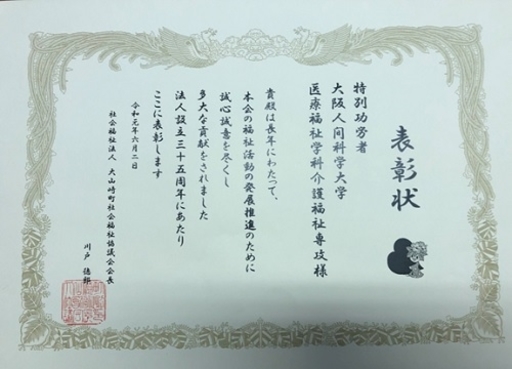 表彰状
特別功労者
大阪人间科学大学
医療福祉学科介護福祉専攻様
貴殿は長年にわたって、
本会の福祉活動の発展推進のために
誠心誠意を尽くし
多大な貢献をされました
法人設立三十五周年にあたり
ここに表彰します
令和元年六月二日
社会福祉法人 大山崎町社会福祉協議会会長
川戸 德郎